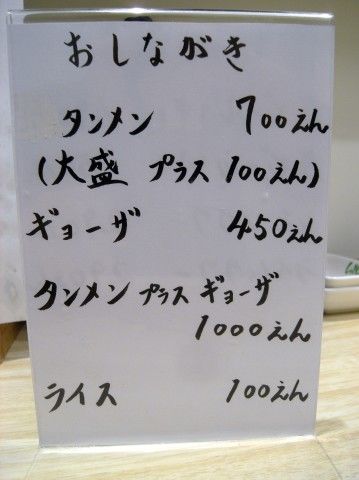 おしながき
タンメン 700えん
(大盛 プラス 100えん)
ギョーザ 450えん
タンメン プラス ギョーザ
1000えん
ライス 100えん